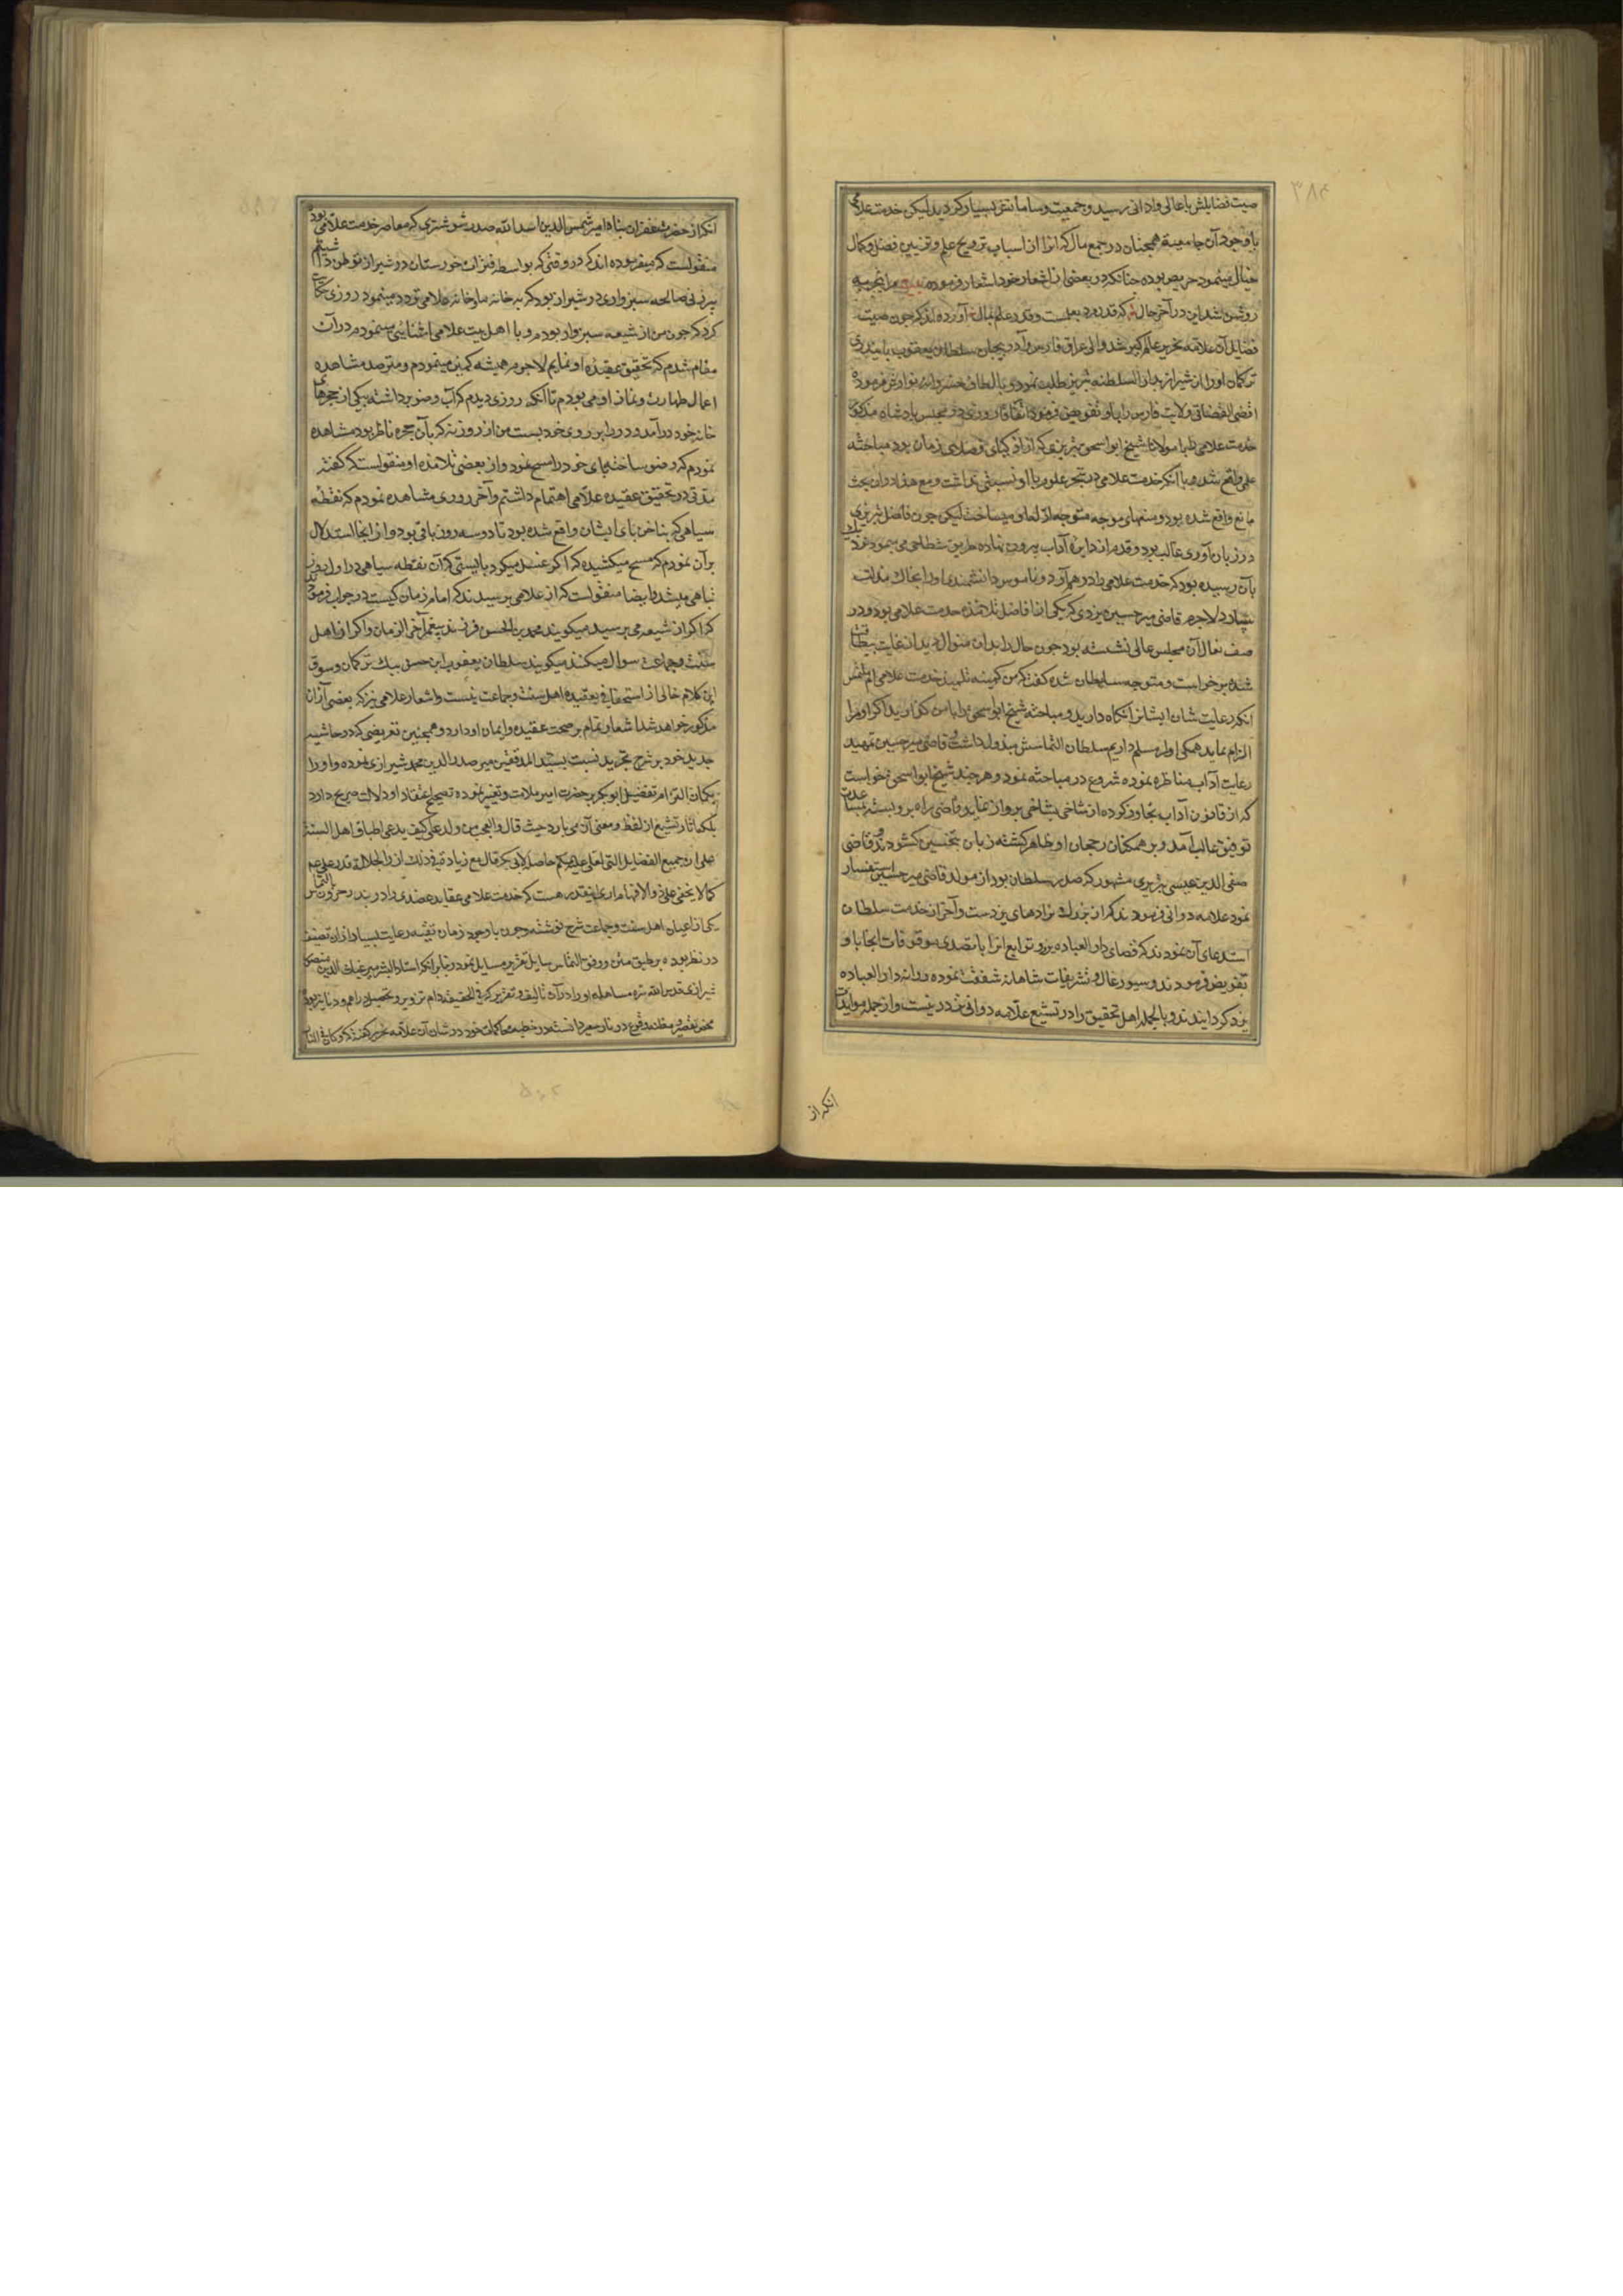 صیت فضایلش باعالی وادانی رسید و جمعیت و سامانش بسیار کردید لیکن خدمت علامی
باوجود آن جامعیة همچنان در جمع مال که انرا از اسباب ترویج علم و تزیین فضل و کمال
خیال مینمود حریص بوده چنانکه در بعضی از اشعار خود اشعار فرموده مرا تجربه
روشن شد این در آخر حال که قدر مرد بعلمست و قدر علم بمال آورده اند که چون صیت
فضایل آن علامه تحریر عالم کیر شد والی عراق و فارس و آذربیجان سلطان یعقوب بایندری
ترکمان او را از شیراز بدار السلطنه تبریز طلب نمود و بالطاف خسروانه نوازش فرموده
اقضی القضاتی ولایت فارس را باو تفویض فرمود اتفاقا روزی در مجلس پادشاه مذکور
خدمت علامی را با مولانا شیخ ابو اسحق تبریزی که از اذکیای فضلای زمان بود مباحثه
علمی واقع شد و با آنکه خدمت علامی در تبحر علوم با او نسبتی نداشت و مع هذا دوان بحث
مانع واقع شده بود و سندهای موجه متوجه ادله او میساخت لیکن چون فاضل تبریزی
در زبان آوری غالب بود و قدم از دایره آداب بیرون نهاده طریق شطاحی می پیمود نزدیک
بآن رسیده بود که خدمت علامی را درهم آرد و ناموس دانشمندی او را بخاک مذلت
سپارد لاجرم قاضی میر حسین یزدی که یکی از افاضل تلامذه خدمت علامی بود و در
صف نعال آن مجلس عالی نشسته بود چون حال را بدان منوال دید از غایت بیطاقتی
شده برخواست و متوجه سلطان شده کفت که من کمینه تلمیذ خدمت علامی ام ملتمس
آنکه رعایت شان ایشانرا نکاه دارید و مباحثه شیخ ابو اسحق را با من کذارید اکر او مرا
الزام نماید همکی او را مسلم داریم سلطان التماسش مبذول داشت و قاضی میر حسین تمهید
رعایت آداب مناظره نموده شروع در مباحثه نمود و هر چند شیخ ابو اسحق خواست
که از قانون آداب تجاوز کرده از شاخی بشاخی پرواز نماید قاضی راه برو بسته بمساعدت
توفیق غالب آمد و بر همکنان رجحان او ظاهر کشته زبان بتحسین کشودند و قاضی
صفی الدین عیسی تبریزی مشهور که صدر سلطان بود از مولد قاضی میر حسین استفسار
نمود علامه دوانی فرمودند که از بزرک زادهای یزدست و آخر از خدمت سلطان
استدعای آن نمودند که قضای دار العباده یزد و توابع انرا با تصدی موقوفات انجا باو
تفویض فرمودند و سیورغال و تشریفات شاهانه شفقت نموده روانه دار العباده
یزد کردایندند و بالجمله اهل تحقیق را در تشیع علامه دوانی تردد نیست و از جمله مویدات
آنکه از
آنکه از حضرت غفران پناه امیر شمس الدین اسد الله صدر شوشتری که معاصر خدمت علامی بود
منقولست که میفرموده اند که در وقتی که بواسطه فترات خورستان در شیراز توطن داشتم
پیرزنی صالحه سبزواری در شیراز بود که بخانه ما و خانه علامی تردد مینمود روزی حکایت
کرد که چون من از شیعه سبزوار بودم و با اهل بیت علامی اشنایی مینمودم در آن
مقام شدم که تحقیق عقیده او نمایم لاجرم همیشه کمین مینمودم و مترصد مشاهده
اعمال طهارت و نماز او می بودم تا آنکه روزی دیدم که آب وضو برداشته بیکی از حجرهای
خانه خود درآمد و در را بر روی خود بست من از روزنه که بآن حجره ناظر بود مشاهده
نمودم که وضو ساخته پای خود را مسح نمود و از بعضی تلامذه او منقولست که کفته
مدتی در تحقیق عقیده علامی اهتمام داشتم و آخر روزی مشاهده نمودم که نقطه
سیاهی که بناخن پای ایشان واقع شده بود تا دو سه روز باقی بود و از انجا استدلال
بر آن نمودم که مسح میکشیده که اکر غسل میکرد بایستی که آن نقطه سیاهی در اول روز
تباهی میشد و ایضا منقولست که از علامی پرسیدند که امام زمان کیست در جواب فرمودند
که اکر از شیعه می پرسید میکویند محمد بن الحسن فرزند پیغمبر آخر الزمان و اکر از اهل
سنت و جماعت سوال میکنید میکویند سلطان یعقوب ابن حسن بیک ترکمان و سوق
این کلام خالی از استخفافی بعقیده اهل سنت و جماعت نیست و اشعار علامی نیز که بعضی از آن
مذکور خواهد شد اشعار تمام بر صحت عقیده و ایمان او دارد و همچنین تعریضی که در حاشیه
جدید خود بر شرح تجرید نسبت بسید المدققین میر صدر الدین محمد شیرازی نموده و او را
بکمان التزام تفضیل ابو بکر بر حضرت امیر ملامت و تغییر نموده تصحیح اعتقاد او دلالت صریح دارد
بلکه آثار تشیع از لفظ و معنی آن می بارد حیث قال و العجب من ولد علی کیف یدعی اطباق اهل السنة
علی ان جمیع الفضایل التی لعلی علیه السلام حاصل لابی بکر قال مع زیادة فی ذلک ازراء لجلالة قدر علی علیه السلام
کما لا یخفی علی ذوی الافهام اری اینقدر هست که خدمت علامی عقاید عضدی را در بندر جرون بالتماس
یکی از اعیان اهل سنت و جماعت شرح نوشته و چون باوجود زمان تقیه رعایت بسیار از ان تصنیف
در نظر بوده بر طبق متن و وفق التماس سایل تقریر مسایل نمود و بنابر آنکه استاد البشر میر غیاث الدین منصور
شیرازی قدس الله سره مساهله او را در آن تالیف و تقریر که فی الحقیقه دام تزویر و تحصیل دراهم و دنانیر بود
محض تقصیر و مظنه وقوع در نار سعیر دانسته در خطبه محاکمات خود در شان آن علامه تحریر کفته